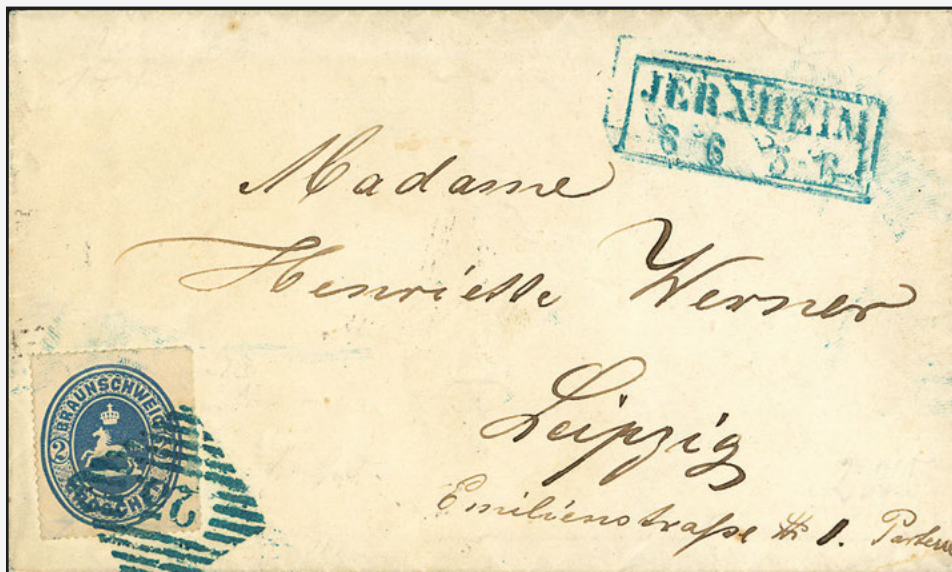 JERXHEIM
6 6 5-6
Madame
Henriette Werner
Leipzig
Emilienstraße № 1. Parterre
2 BRAUNSCHWEIG
GROSCHEN
2